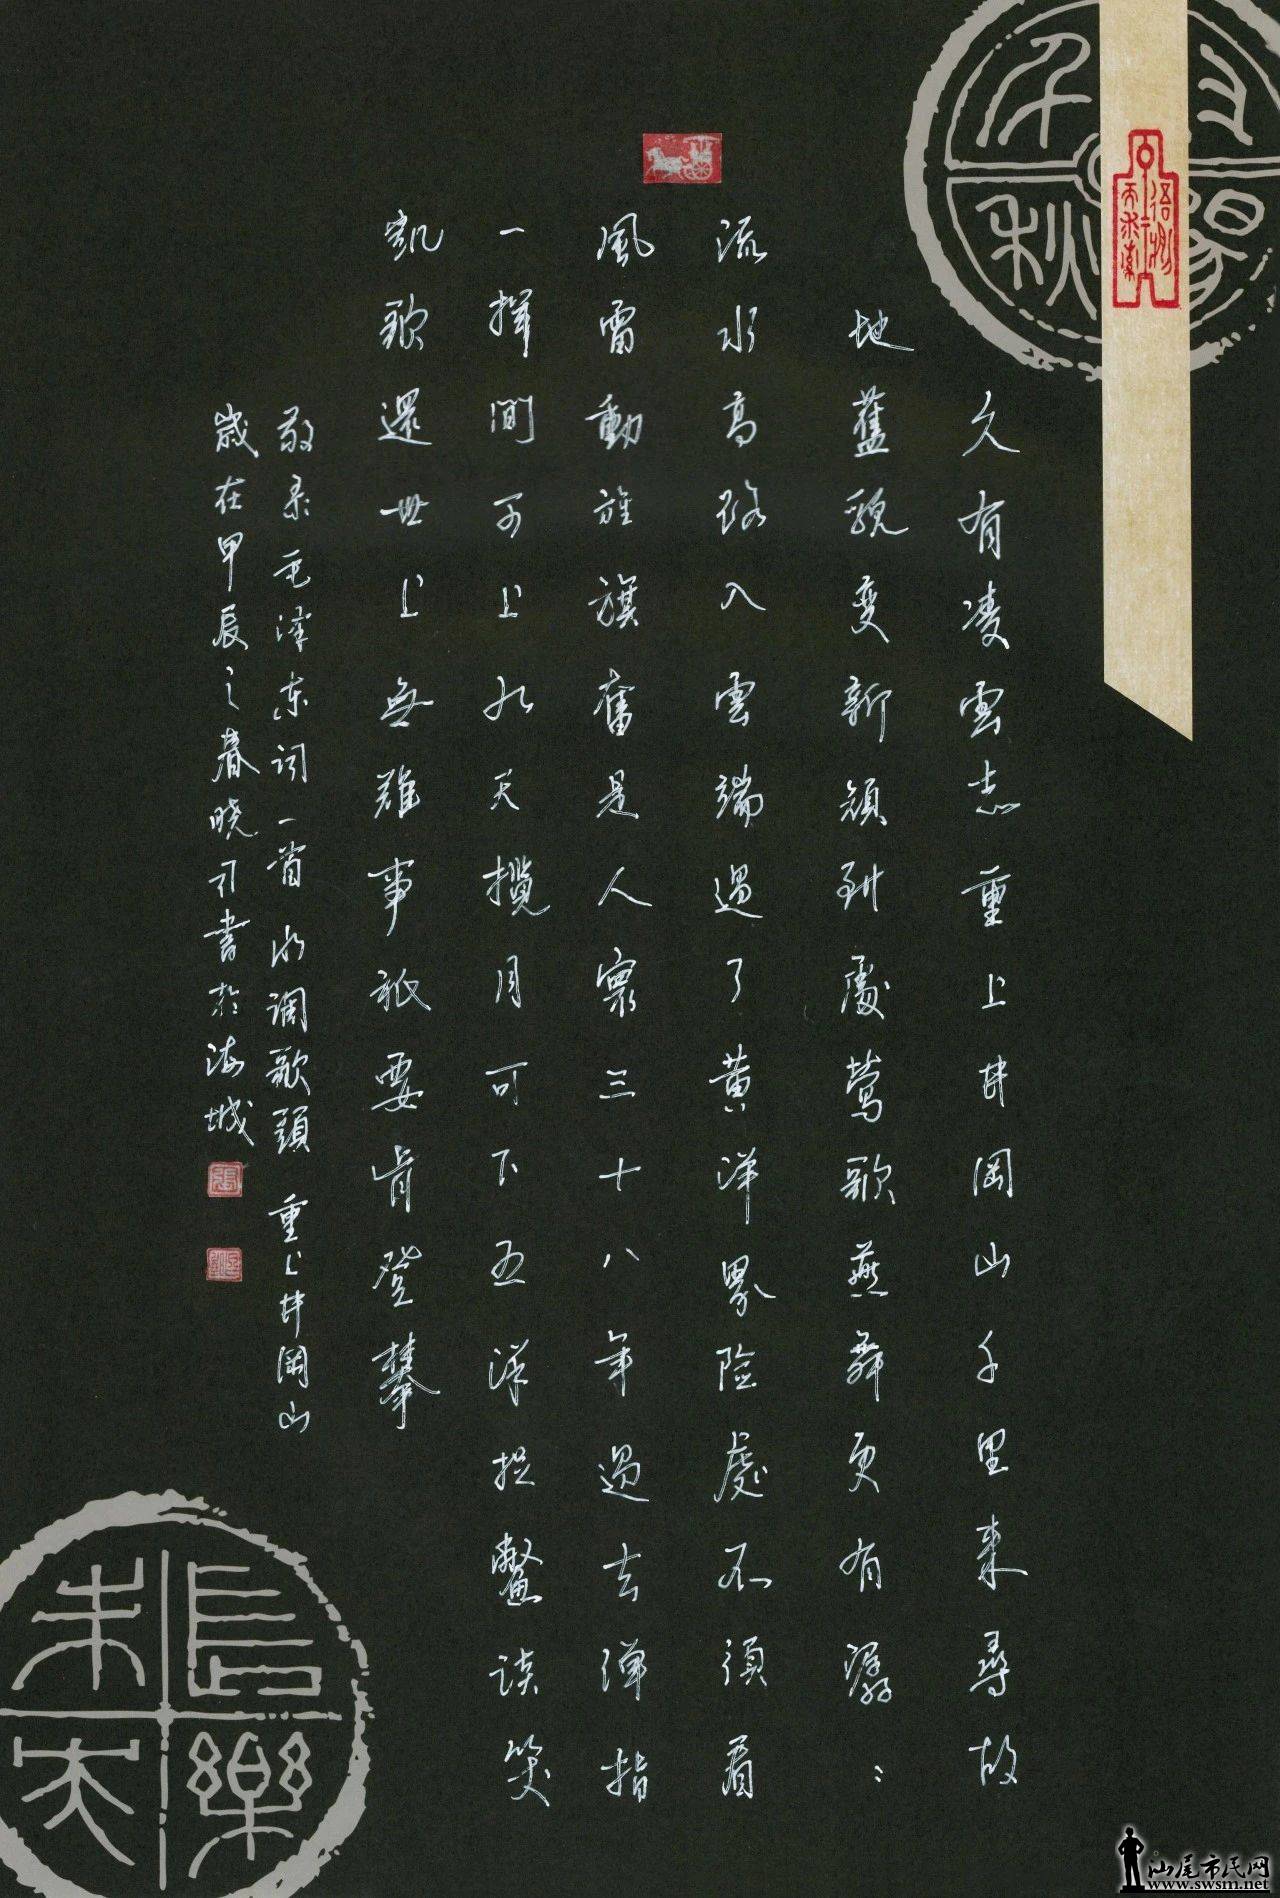 久有凌雲志重上井岡山千里来尋故
地舊貌变新顔到處鶯歌燕舞更有潺：
流水高路入雲端過了黄洋界险處不須看
風雷動旌旗奮是人寰三十八年過去弹指
一揮間可上九天攬月可下五洋捉鱉谈笑
凱歌還世上無難事祇要肯登攀
敬录毛泽东词一首水调歌頭 重上井岡山
歲在甲辰之春晓書於海城
張
千秋
長樂未央
汕尾市民网
www.swsm.net